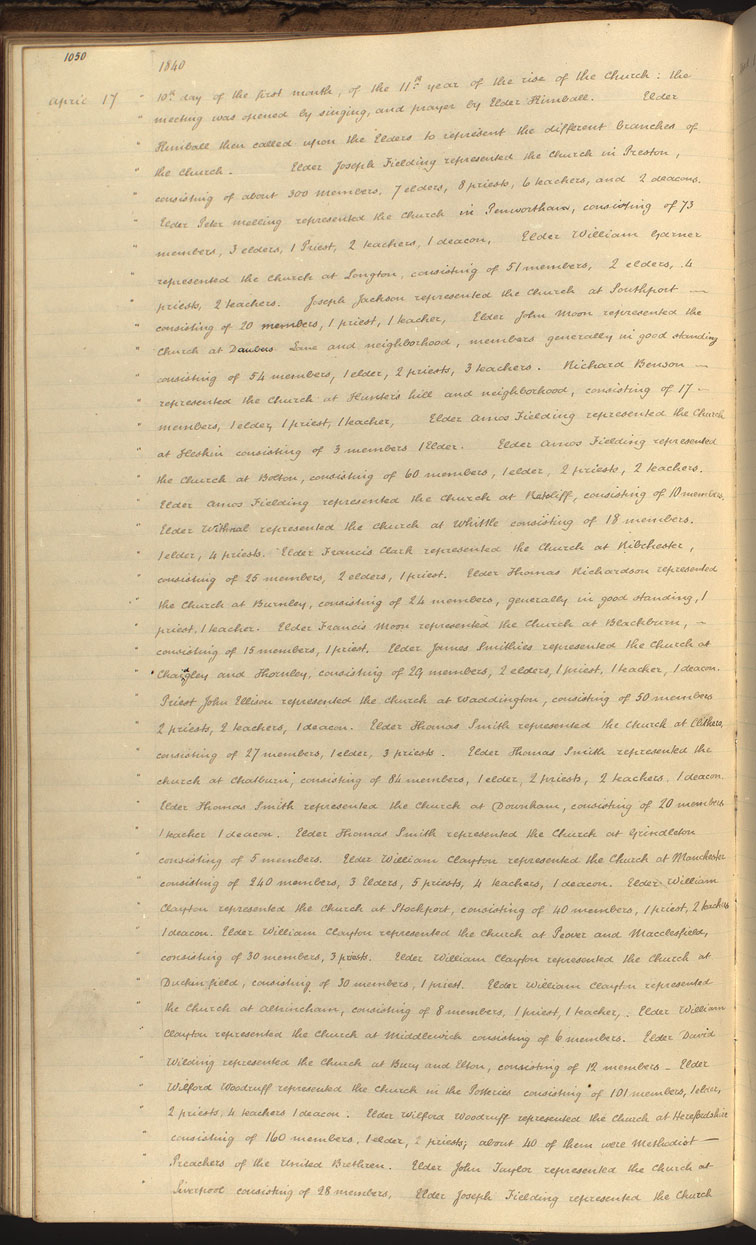 1050
1840
April 17 " 10th day of the first month, of the 11th year of the rise of the Church: the
" meeting was opened by singing, and prayer by Elder Kimball. Elder
" Kimball then called upon the Elders to represent the different branches of
" the Church. Elder Joseph Fielding represented the Church in Preston,
" consisting of about 300 members, 7 elders, 8 priests, 6 teachers, and 2 deacons.
" Elder Peter Melling represented the Church in Penwortham, consisting of 73
" members, 3 elders, 1 Priest, 2 teachers, 1 deacon, Elder William Garner
" represented the Church at Longton, consisting of 51 members, 2 elders, 4
" priests, 2 teachers. Joseph Jackson represented the Church at Southport —
" consisting of 20 members, 1 priest, 1 teacher, Elder John Moon represented the
" Church at Daubers Lane and neighborhood, members generally in good standing
" consisting of 54 members, 1 elder, 2 priests, 3 teachers. Richard Benson —
" represented the Church at Hunters hill and neighborhood, consisting of 17 —
" members, 1 elder, 1 priest, 1 teacher, Elder Amos Fielding represented the Church
" at Heskin consisting of 3 members 1 Elder. Elder Amos Fielding represented
" the Church at Bolton, consisting of 60 members, 1 elder, 2 priests, 2 teachers.
" Elder Amos Fielding represented the Church at Ratcliff, consisting of 10 members.
" Elder Withnal represented the Church at Whittle consisting of 18 members.
" 1 elder, 4 priests. Elder Francis Clark represented the Church at Ribchester,
" consisting of 25 members, 2 elders, 1 priest. Elder Thomas Richardson represented
" the Church at Burnley, consisting of 24 members, generally in good standing, 1
" priest, 1 teacher. Elder Francis Moon represented the Church at Blackburn, —
" consisting of 15 members, 1 priest. Elder James Smithies represented the Church at
" Chaigley and Thornley, consisting of 29 members, 2 elders, 1 priest, 1 teacher, 1 deacon.
" Priest John Ellison represented the Church at Waddington, consisting of 50 members
" 2 priests, 2 teachers, 1 deacon. Elder Thomas Smith represented the Church at Clithero,
" consisting of 27 members, 1 elder, 3 priests. Elder Thomas Smith represented the
" church at Chatburn, consisting of 84 members, 1 elder, 2 priests, 2 teachers, 1 deacon.
" Elder Thomas Smith represented the Church at Downham, consisting of 20 members
" 1 teacher 1 deacon. Elder Thomas Smith represented the Church at Grindleton
" consisting of 5 members. Elder William Clayton represented the Church at Manchester
" consisting of 240 members, 3 Elders, 5 priests, 4 teachers, 1 deacon. Elder William
" Clayton represented the Church at Stockport, consisting of 40 members, 1 priest, 2 teachers
" 1 deacon. Elder William Clayton represented the Church at Peover and Macclesfield,
" consisting of 30 members, 3 priests. Elder William Clayton represented the Church at
" Duckinfield, consisting of 30 members, 1 priest. Elder William Clayton represented
" the Church at Altrincham, consisting of 8 members, 1 priest, 1 teacher, Elder William
" Clayton represented the Church at Middlewich consisting of 6 members. Elder David
" Wilding represented the Church at Bury and Elton, consisting of 12 members — Elder
" Wilford Woodruff represented the Church in the Potteries consisting of 101 members, 1 elder,
" 2 priests, 4 teachers 1 deacon. Elder Wilford Woodruff represented the Church at Herefordshire
" consisting of 160 members, 1 elder, 2 priests; about 40 of them were Methodist —
" Preachers of the United Brethren. Elder John Taylor represented the Church at
" Liverpool consisting of 28 members, Elder Joseph Fielding represented the Church